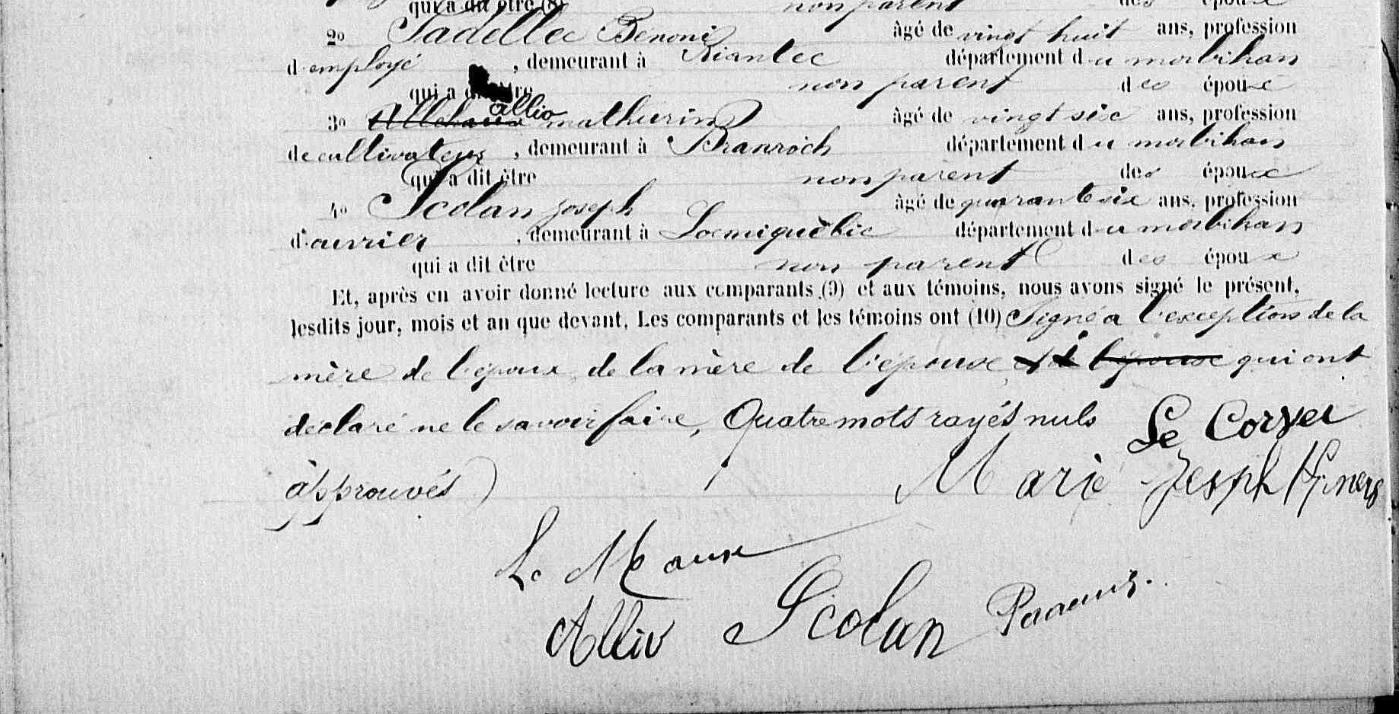 qui a dit être (8) non parent des époux
2º Benoni âgé de vingt huit ans, profession
d'employé , demeurant à Riantec département du morbihan
qui a dit être non parent des époux
3º Allehaux allio mathurin âgé de vingt six ans, profession
de cultivateur , demeurant à département du morbihan
qui a dit être non parent des époux
4º Scolan joseph âgé de quarante six ans, profession
d'ouvrier , demeurant à Locmiquélic département du morbihan
qui a dit être non parent des époux
Et, après en avoir donné lecture aux comparants (9) et aux témoins, nous avons signé le présent,
lesdits jour, mois et an que devant. Les comparants et les témoins ont (10) Signé a l'exception de la
mère de l'époux de la mère de l'épouse l'épouse qui ont
declaré ne le savoir faire, Quatre mots rayés nuls Le Corvec
approuvés Marie Joseph
Le
Allio Scolan